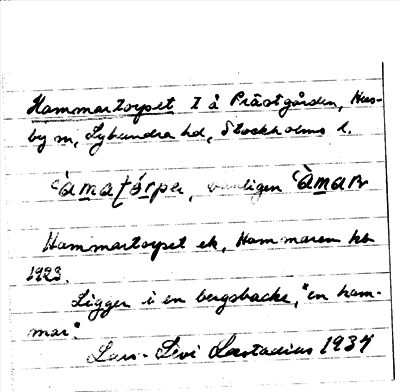 Hammartorpet I å Prästgården, Hus-
by sn, Lyhundra hd, Stockholms l.
`amat´orpər, vanligen `amaʀ
Hammartorpet ek, Hammaren kb
1923.
Ligger i en bergsbacke, "en ham-
mar".
Lars-Levi Læstadius 1934